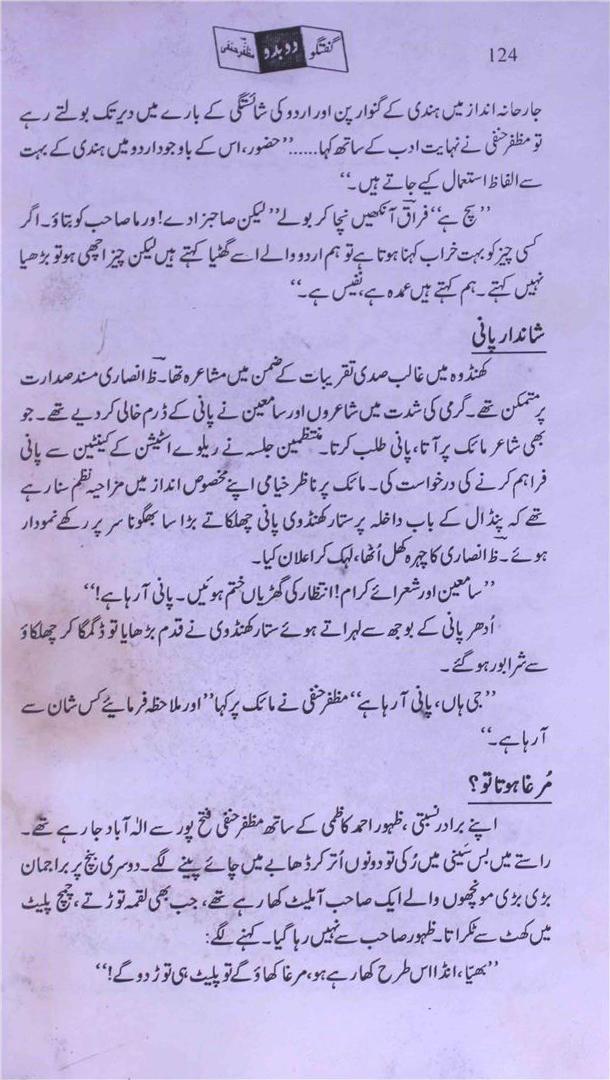 گفتگو دوبدو مظفر حنفی
124
جارحانہ انداز میں ہندی کے گنوارپن اور اردو کی شائستگی کے بارے میں دیر تک بولتے رہے
تو مظفر حنفی نے نہایت ادب کے ساتھ کہا......’’حضور، اس کے باوجود اردو میں ہندی کے بہت
سے الفاظ استعمال کیے جاتے ہیں۔‘‘
’’سچ ہے‘‘ فراقؔ آنکھیں نچا کر بولے’’لیکن صاحبزادے! ورما صاحب کو بتاؤ۔ اگر
کسی چیز کو بہت خراب کہنا ہوتا ہے تو ہم اردو والے اسے گھٹیا کہتے ہیں لیکن چیز اچھی ہو تو بڑھیا
نہیں کہتے۔ ہم کہتے ہیں عمدہ ہے، نفیس ہے۔‘‘
شاندار پانی
کھنڈوہ میں غالب صدی تقریبات کے ضمن میں مشاعرہ تھا۔ ظؔ انصاری مسند صدارت
پر متمکن تھے۔ گرمی کی شدت میں شاعروں اور سامعین نے پانی کے ڈرم خالی کر دیے تھے۔ جو
بھی شاعر مائک پر آتا، پانی طلب کرتا۔ منتظمین جلسہ نے ریلوے اسٹیشن کے کینٹین سے پانی
فراہم کرنے کی درخواست کی۔ مائک پر ناظر خیامی اپنے مخصوص انداز میں مزاحیہ نظم سنا رہے
تھے کہ پنڈال کے باب داخلہ پر ستار کھنڈوی پانی چھلکاتے بڑا سا بھگونا سر پر رکھے نمودار
ہوئے۔ ظؔ انصاری کا چہرہ کھل اُٹھا، لہک کر اعلان کیا۔
’’سامعین اور شعرائے کرام! انتظار کی گھڑیاں ختم ہوئیں۔ پانی آ رہا ہے!‘‘
اُدھر پانی کے بوجھ سے لہراتے ہوئے ستار کھنڈوی نے قدم بڑھایا تو ڈگمگا کر چھلکاؤ
سے شرابور ہو گئے۔
’’جی ہاں، پانی آ رہا ہے‘‘ مظفر حنفی نے مائک پر کہا’’اور ملاحظہ فرمائیے کس شان سے
آ رہا ہے۔‘‘
مُرغا ہوتا تو؟
اپنے برادر نسبتی، ظہور احمد کاظمی کے ساتھ مظفر حنفی فتح پور سے الٰہ آباد جا رہے تھے۔
راستے میں بس سَینی میں رُکی تو دونوں اُتر کر ڈھابے میں چائے پینے لگے۔ دوسری بنچ پر براجمان
بڑی بڑی مونچھوں والے ایک صاحب آملیٹ کھا رہے تھے، جب بھی لقمہ توڑتے، چمچ پلیٹ
میں کھٹ سے ٹکراتا۔ ظہور صاحب سے نہیں رہا گیا۔ کہنے لگے:
’’بھیّا، انڈا اس طرح کھا رہے ہو، مرغا کھاؤ گے تو پلیٹ ہی توڑ دو گے!‘‘